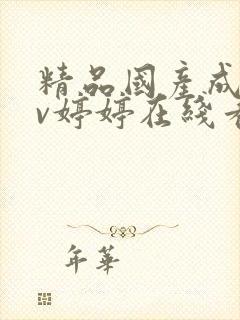 精品國產成
v婷婷在綫看
年華